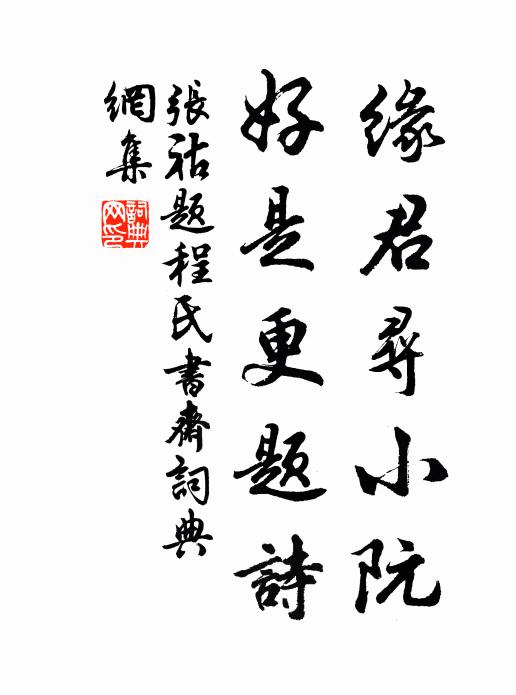 緣君尋小阮
好是更題詩
張祜題程氏書齋詞典
網集
詞典
网印